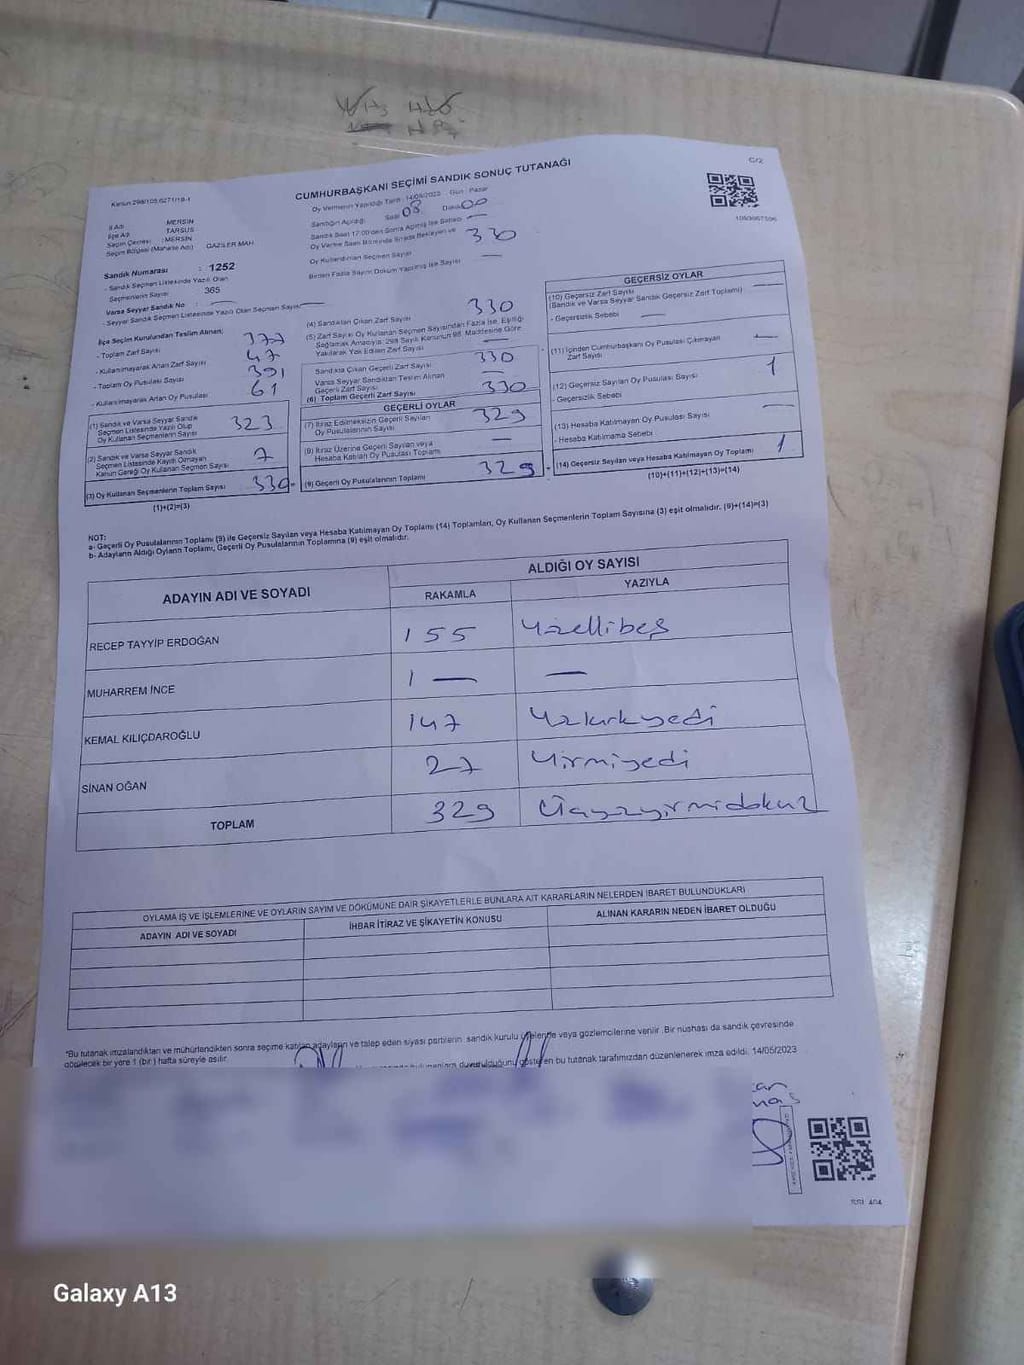 CUMHURBAŞKANI SEÇİMİ SANDIK SONUÇ TUTANAĞI
C/2
Oy Vermenin Yapıldığı Tarih : 14/05/2023 Gün : Pazar
Sandığın Açıldığı Saat 08 Dakika 00
Sandık Saat 17:00'den Sonra Açılmış İse Sebebi —
330
Oy Kullandırılan Seçmen Sayısı
Birden Fazla Sayım Döküm Yapılmış İse Sayısı —
İl Adı : MERSİN
İlçe Adı : TARSUS
Seçim Çevresi : MERSİN
Seçim Bölgesi (Mahalle Adı) GAZİLER MAH
Sandık Numarası : 1252
- Sandık Seçmen Listesinde Yazılı Olan
Seçmenlerin Sayısı 365
Varsa Seyyar Sandık No : —
- Seyyar Sandık Seçmen Listesinde Yazılı Olan Seçmen Sayısı —
İlçe Seçim Kurulundan Teslim Alınan;
- Toplam Zarf Sayısı 377
- Kullanılmayarak Artan Zarf Sayısı 47
- Toplam Oy Pusulası Sayısı 391
- Kullanılmayarak Artan Oy Pusulası 61
(1) Sandık ve Varsa Seyyar Sandık
Seçmen Listesinde Yazılı Olup
Oy Kullanan Seçmenlerin Sayısı 323
(2) Sandık ve Varsa Seyyar Sandık
Seçmen Listesinde Kayıtlı Olmayan
Kanun Gereği Oy Kullanan Seçmen Sayısı 7
(3) Oy Kullanan Seçmenlerin Toplam Sayısı 330
(1)+(2)=(3)
(4) Sandıktan Çıkan Zarf Sayısı 330
(5) Zarf Sayısı Oy Kullanan Seçmen Sayısından Fazla İse, Eşitliği
Sağlamak Amacıyla, 298 Sayılı Kanunun 98. Maddesine Göre
Yakılarak Yok Edilen Zarf Sayısı —
Sandıkta Çıkan Geçerli Zarf Sayısı 330
Varsa Seyyar Sandıktan Teslim Alınan
Geçerli Zarf Sayısı —
(6) Toplam Geçerli Zarf Sayısı 330
GEÇERLİ OYLAR
(7) İtiraz Edilmeksizin Geçerli Sayılan
Oy Pusulalarının Sayısı 329
(8) İtiraz Üzerine Geçerli Sayılan veya
Hesaba Katılan Oy Pusulası Toplamı —
(9) Geçerli Oy Pusulalarının Toplamı 329
GEÇERSİZ OYLAR
(10) Geçersiz Zarf Sayısı
(Sandık ve Varsa Seyyar Sandık Geçersiz Zarf Toplamı) —
- Geçersizlik Sebebi —
(11) İçinden Cumhurbaşkanı Oy Pusulası Çıkmayan
Zarf Sayısı —
(12) Geçersiz Sayılan Oy Pusulası Sayısı 1
- Geçersizlik Sebebi
(13) Hesaba Katılmayan Oy Pusulası Sayısı —
- Hesaba Katılmama Sebebi
(14) Geçersiz Sayılan veya Hesaba Katılmayan Oy Toplamı 1
(10)+(11)+(12)+(13)=(14)
NOT:
a- Geçerli Oy Pusulalarının Toplamı (9) ile Geçersiz Sayılan veya Hesaba Katılmayan Oy Toplamı (14) Toplamları, Oy Kullanan Seçmenlerin Toplam Sayısına (3) eşit olmalıdır. (9)+(14)=(3)
b- Adayların Aldığı Oyların Toplamı, Geçerli Oy Pusulalarının Toplamına (9) eşit olmalıdır.
ADAYIN ADI VE SOYADI
ALDIĞI OY SAYISI
RAKAMLA YAZIYLA
RECEP TAYYİP ERDOĞAN 155 Yüzellibeş
MUHARREM İNCE 1 — —
KEMAL KILIÇDAROĞLU 147 Yüzkırkyedi
SİNAN OĞAN 27 Yirmiyedi
TOPLAM 329 Üçyüzyirmidokuz
OYLAMA İŞ VE İŞLEMLERİNE VE OYLARIN SAYIM VE DÖKÜMÜNE DAİR ŞİKAYETLERLE BUNLARA AİT KARARLARIN NELERDEN İBARET BULUNDUKLARI
ADAYIN ADI VE SOYADI İHBAR İTİRAZ VE ŞİKAYETİN KONUSU ALINAN KARARIN NEDEN İBARET OLDUĞU
*Bu tutanak imzalandıktan ve mühürlendikten sonra seçime katılan adayların ve talep eden siyasi partilerin sandık kurulu üyelerine veya gözlemcilerine verilir. Bir nüshası da sandık çevresinde
görülecek bir yere 1 (bir) hafta süreyle asılır.
gösteren bu tutanak tarafımızdan düzenlenerek imza edildi. 14/05/2023
Galaxy A13